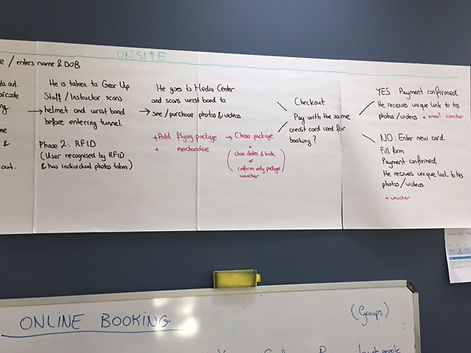 ONSITE
e / enters name & DOB
He is taken to Gear Up.
Staff / Instructor scans
helmet and wrist band
before entering tunnel.
Phase 2: RFID
(User recognised by RFID
& has individual photos taken)
He goes to Media Center
and scans wrist band to
see / purchase photos & videos
+ Add flying package
+ merchandise
→ Choose package
+
chose dates & book
or
confirm only package
voucher
Checkout
Pay with the same
credit card used for
booking?
YES: Payment confirmed
He receives unique link to his
photos / videos + email voucher
NO: Enter new card
Fill form
Payment confirmed
He receives unique link to his
photos / videos
+ voucher
ONLINE BOOKING
(Groups)